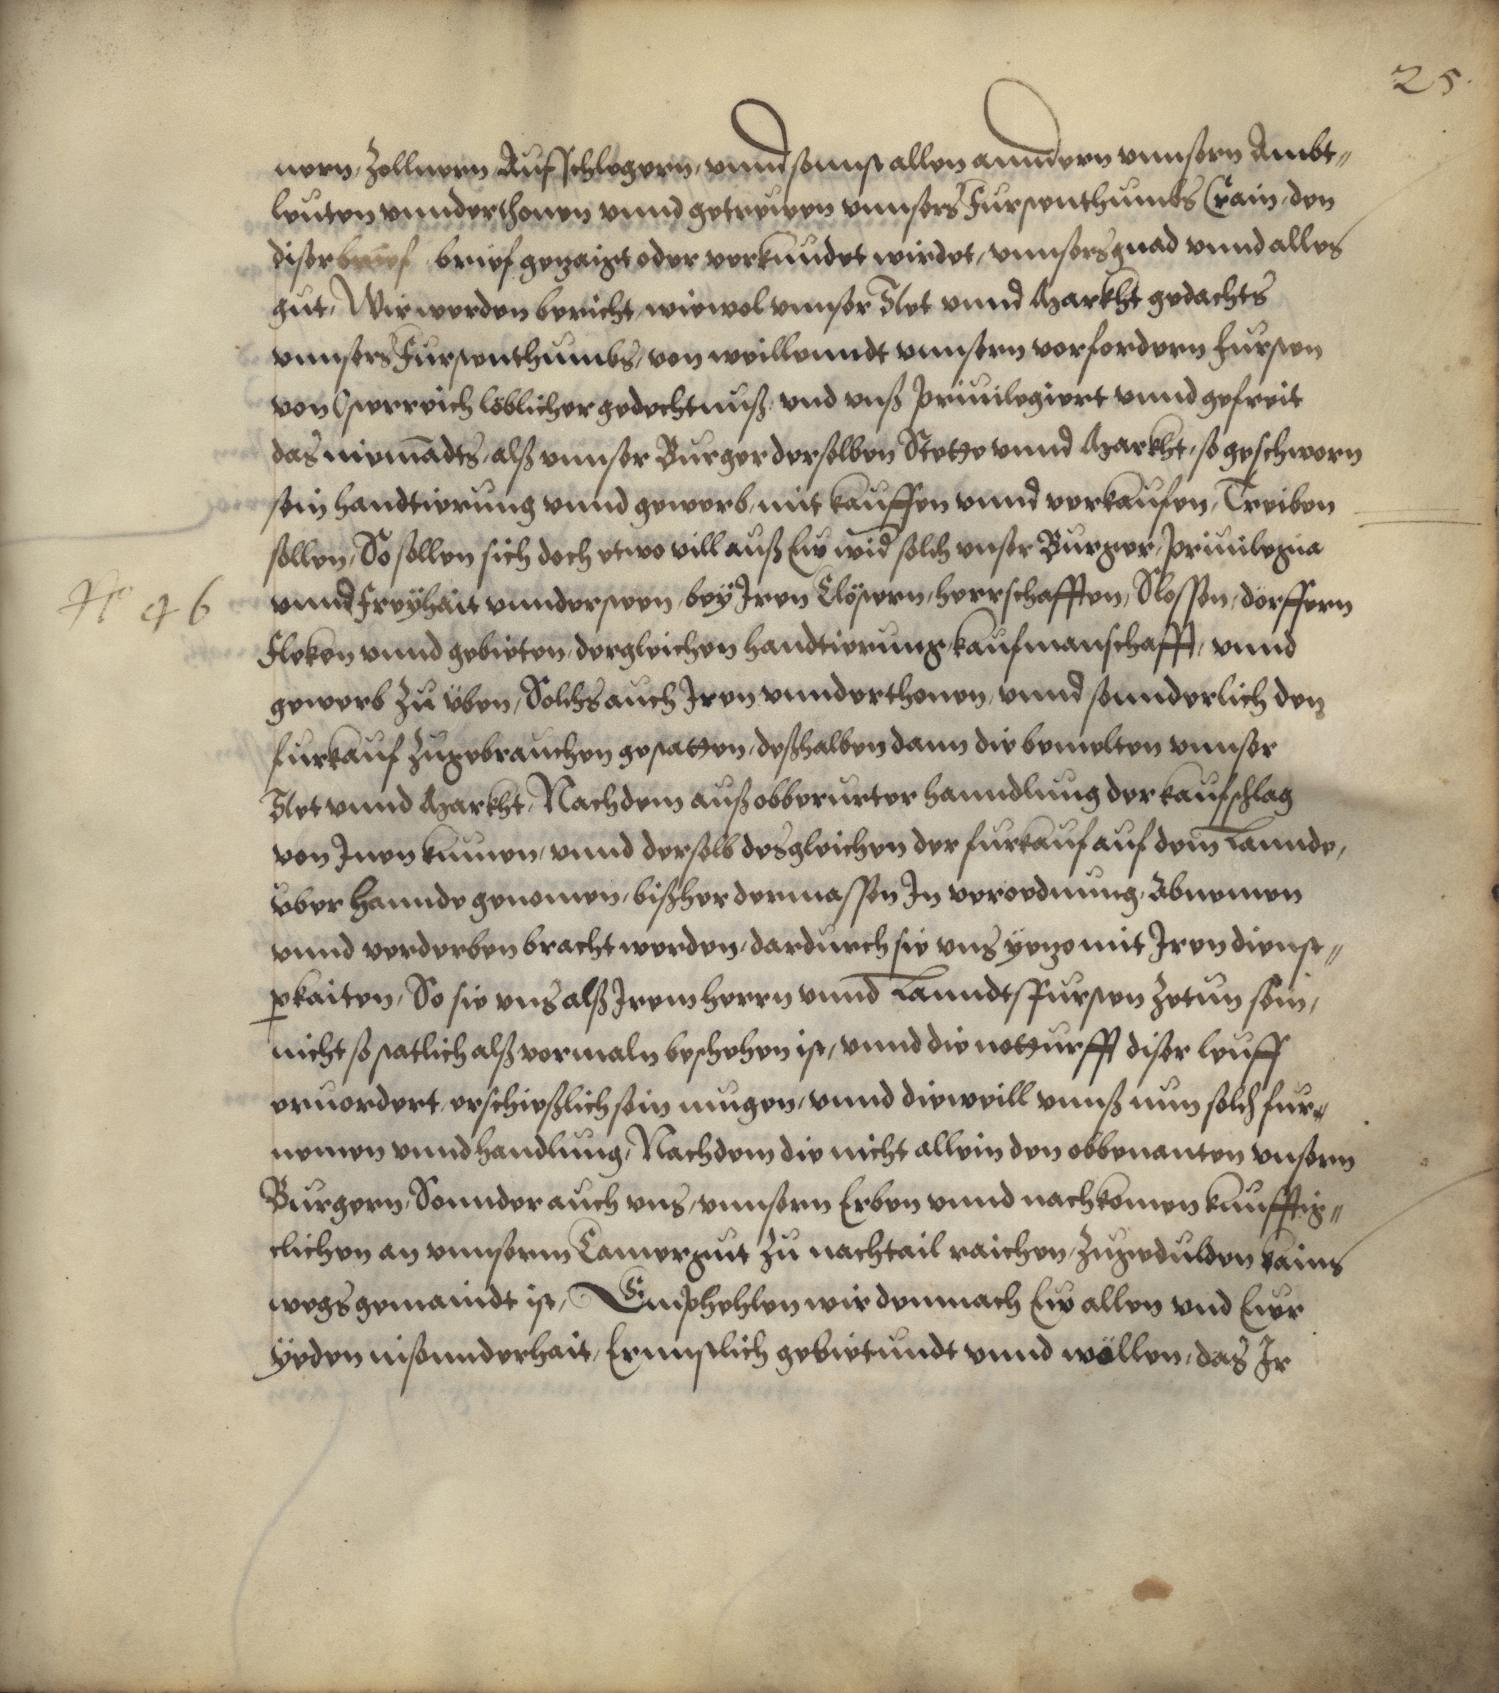 25.
nern, Zollnern Aufschlegern, vnnd sonnst allen anndern vnnsern Ambt„
leuten vnnderthonen vnnd getrewen vnnsers Furstenthumbs Crain, den
diser brief brief gezaigt oder verkundet wirdet, vnnsers gnad vnnd alles
gut, Wir werden bericht, wiewol vnnser Stet vnnd Markht gedachts
vnnsers Furstenthumbs, von weillenndt vnnsern vorfordern Fursten
von Osterreich löblicher gedechtnuß, vnd vnß priuilegiert vnnd gefreit
das niemādts, alß vnnser Burger derselben Stette vnnd Markht, so geschworn
sein handtierung vnnd gewerb, mit kauffen vnnd verkaufen, Treiben
sollen, So sollen sich doch etwo vill auß Eu wid solch vnser Burger, priuilegia
vnnd Freÿhait vnndersteen, beÿ Iren Clöstern, herrschafften, Slossen, dörffern
Fleken vnnd gebieten, dergleichen handtierung, kaufmanschafft, vnnd
gewerb zu üben, Solchs auch Iren vnnderthonen, vnnd sonnderlich den
furkauf zugebrauchen gestatten, deßhalben dann die bemelten vnnser
Stet vnnd Markht, Nachdem auß obberurter hanndlung der kaufschlag
von Inen kumen, vnnd derselb desgleichen der furkauf auf dem Lannde,
vber Hannde genomen, bißher dermassen In verordnung, Abnemen
vnnd verderben bracht werden, dardurch sie vns yezo mit Iren dienst„
perkaiten, So sie vns alß Irem herrn vnnd Lanndtsfursten zetun sein,
nicht so statlich alß vormaln beschehen ist, vnnd die notturfft diser leuff
eruordert, erschießlich sein mugen, vnnd dieweill vnnß nun solch fur„
nemen vnnd handlung, Nachdem die nicht allein den obbenanten vnsern
Burgern, Sonnder auch vns, vnnsern Erben vnnd nachkomen kunfftig„
clichen an vnnserm Camergut zu nachtail raichen, zugedulden kains
wegs gemaindt ist, Emphehlen wir demnach Eu allen vnd Eur
Yeden nisonnderhait, Ernnstlich gebietundt vnnd wöllen, das Ir
No 46